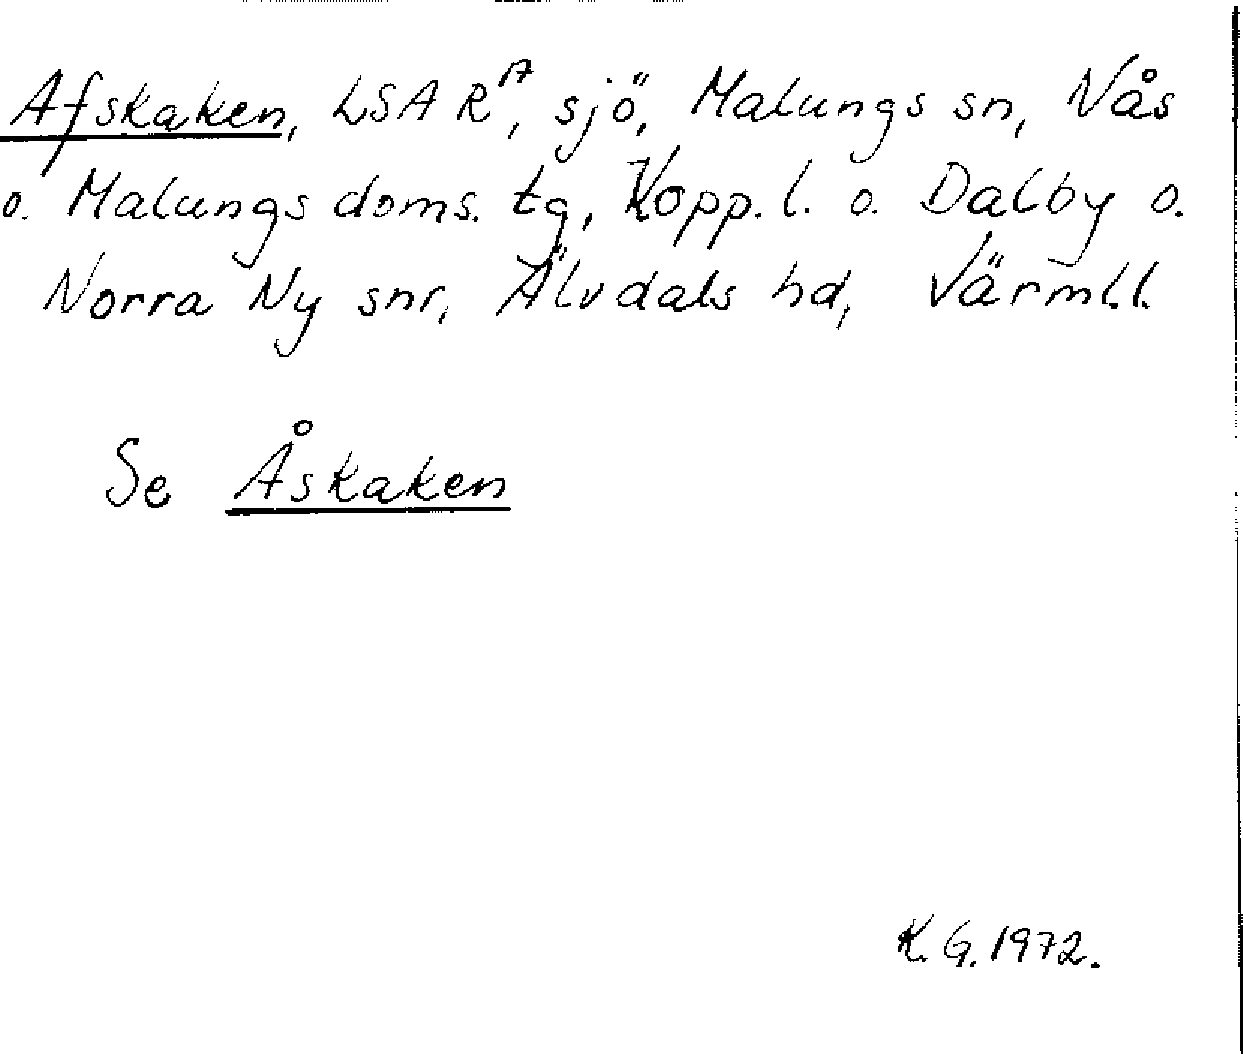 Afskaken, LSA R¹⁷, sjö, Malungs sn, Nås
o. Malungs doms. tg, Kopp. l. o. Dalby o.
Norra Ny snr, Älvdals hd, Värml.l.
Se Åskaken
K.G. 1972.